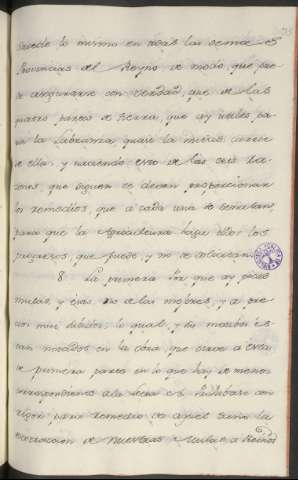 Sucede lo mismo en todas las demas
Provincias del Reyno de modo, que pue-
de asegurarse con verdad, que de las
quatro partes de tierra, que ay utiles pa-
ra la Labranza, quasi la mitad carece
de ella; y naciendo esto de las seis ra-
zones que siguen se deven proporcionar
los remedios, que a cada una se señalan,
para que la Agricultura haga ellos los
progresos, que puede, y no se adelantan.
8. La primera Por que ay pocas
mulas, y esas no de las mejores, y a pre-
cios muy subidos, lo qual, y los motivos es-
tan notados en la obra, que sirve a esta
de primera parte en lo que hay de menos
correspondiente a la letra C. Prohibase con
rigor para remedio de aquel daño la
extraccion de nuestras Mulas a Reinos